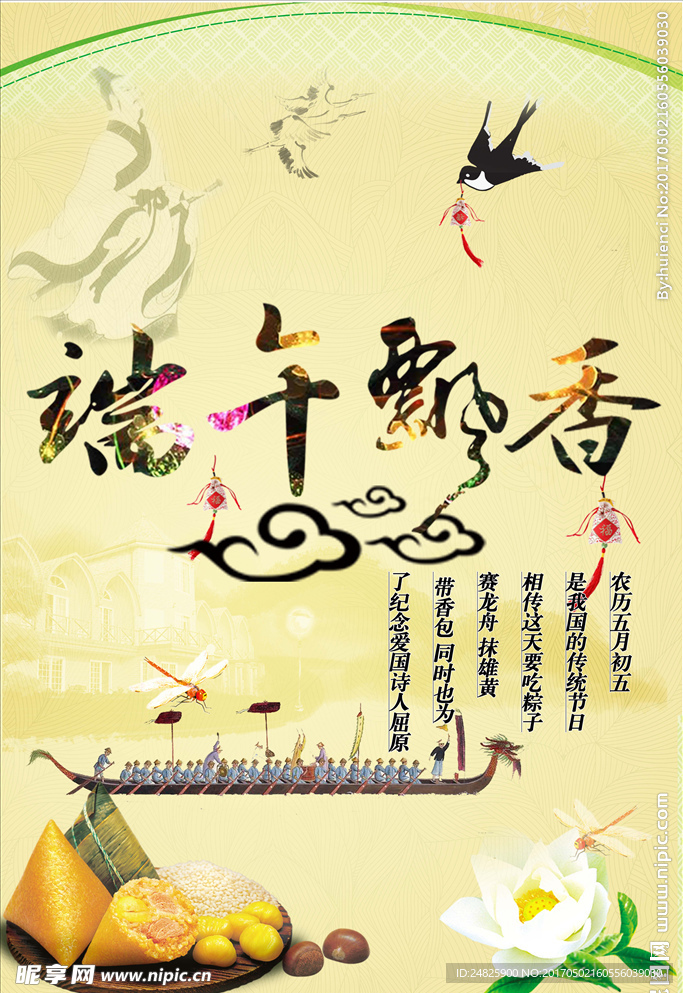 By:huienci No:20170502160556039030
端午飘香
福
福
农历五月初五
是我国的传统节日
相传这天要吃粽子
赛龙舟 抹雄黄
带香包 同时也为
了纪念爱国诗人屈原
昵享网 www.nipic.cn
昵图网 www.nipic.com
ID:24825900 NO:20170502160556039030